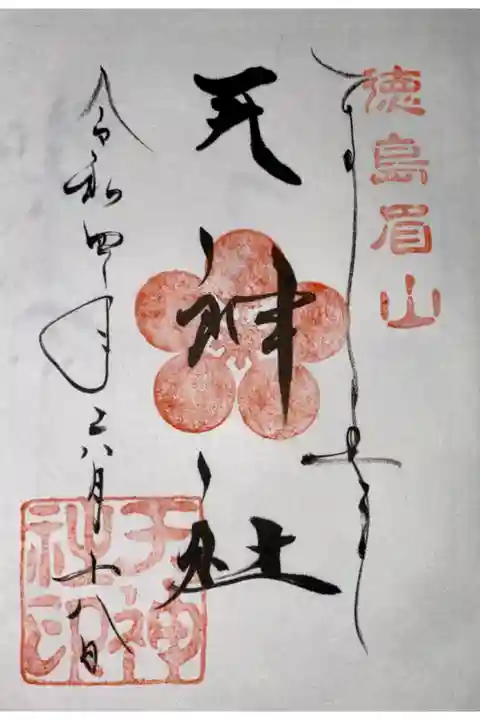 徳島眉山
天神社
天神社印
令和四年六月十八日